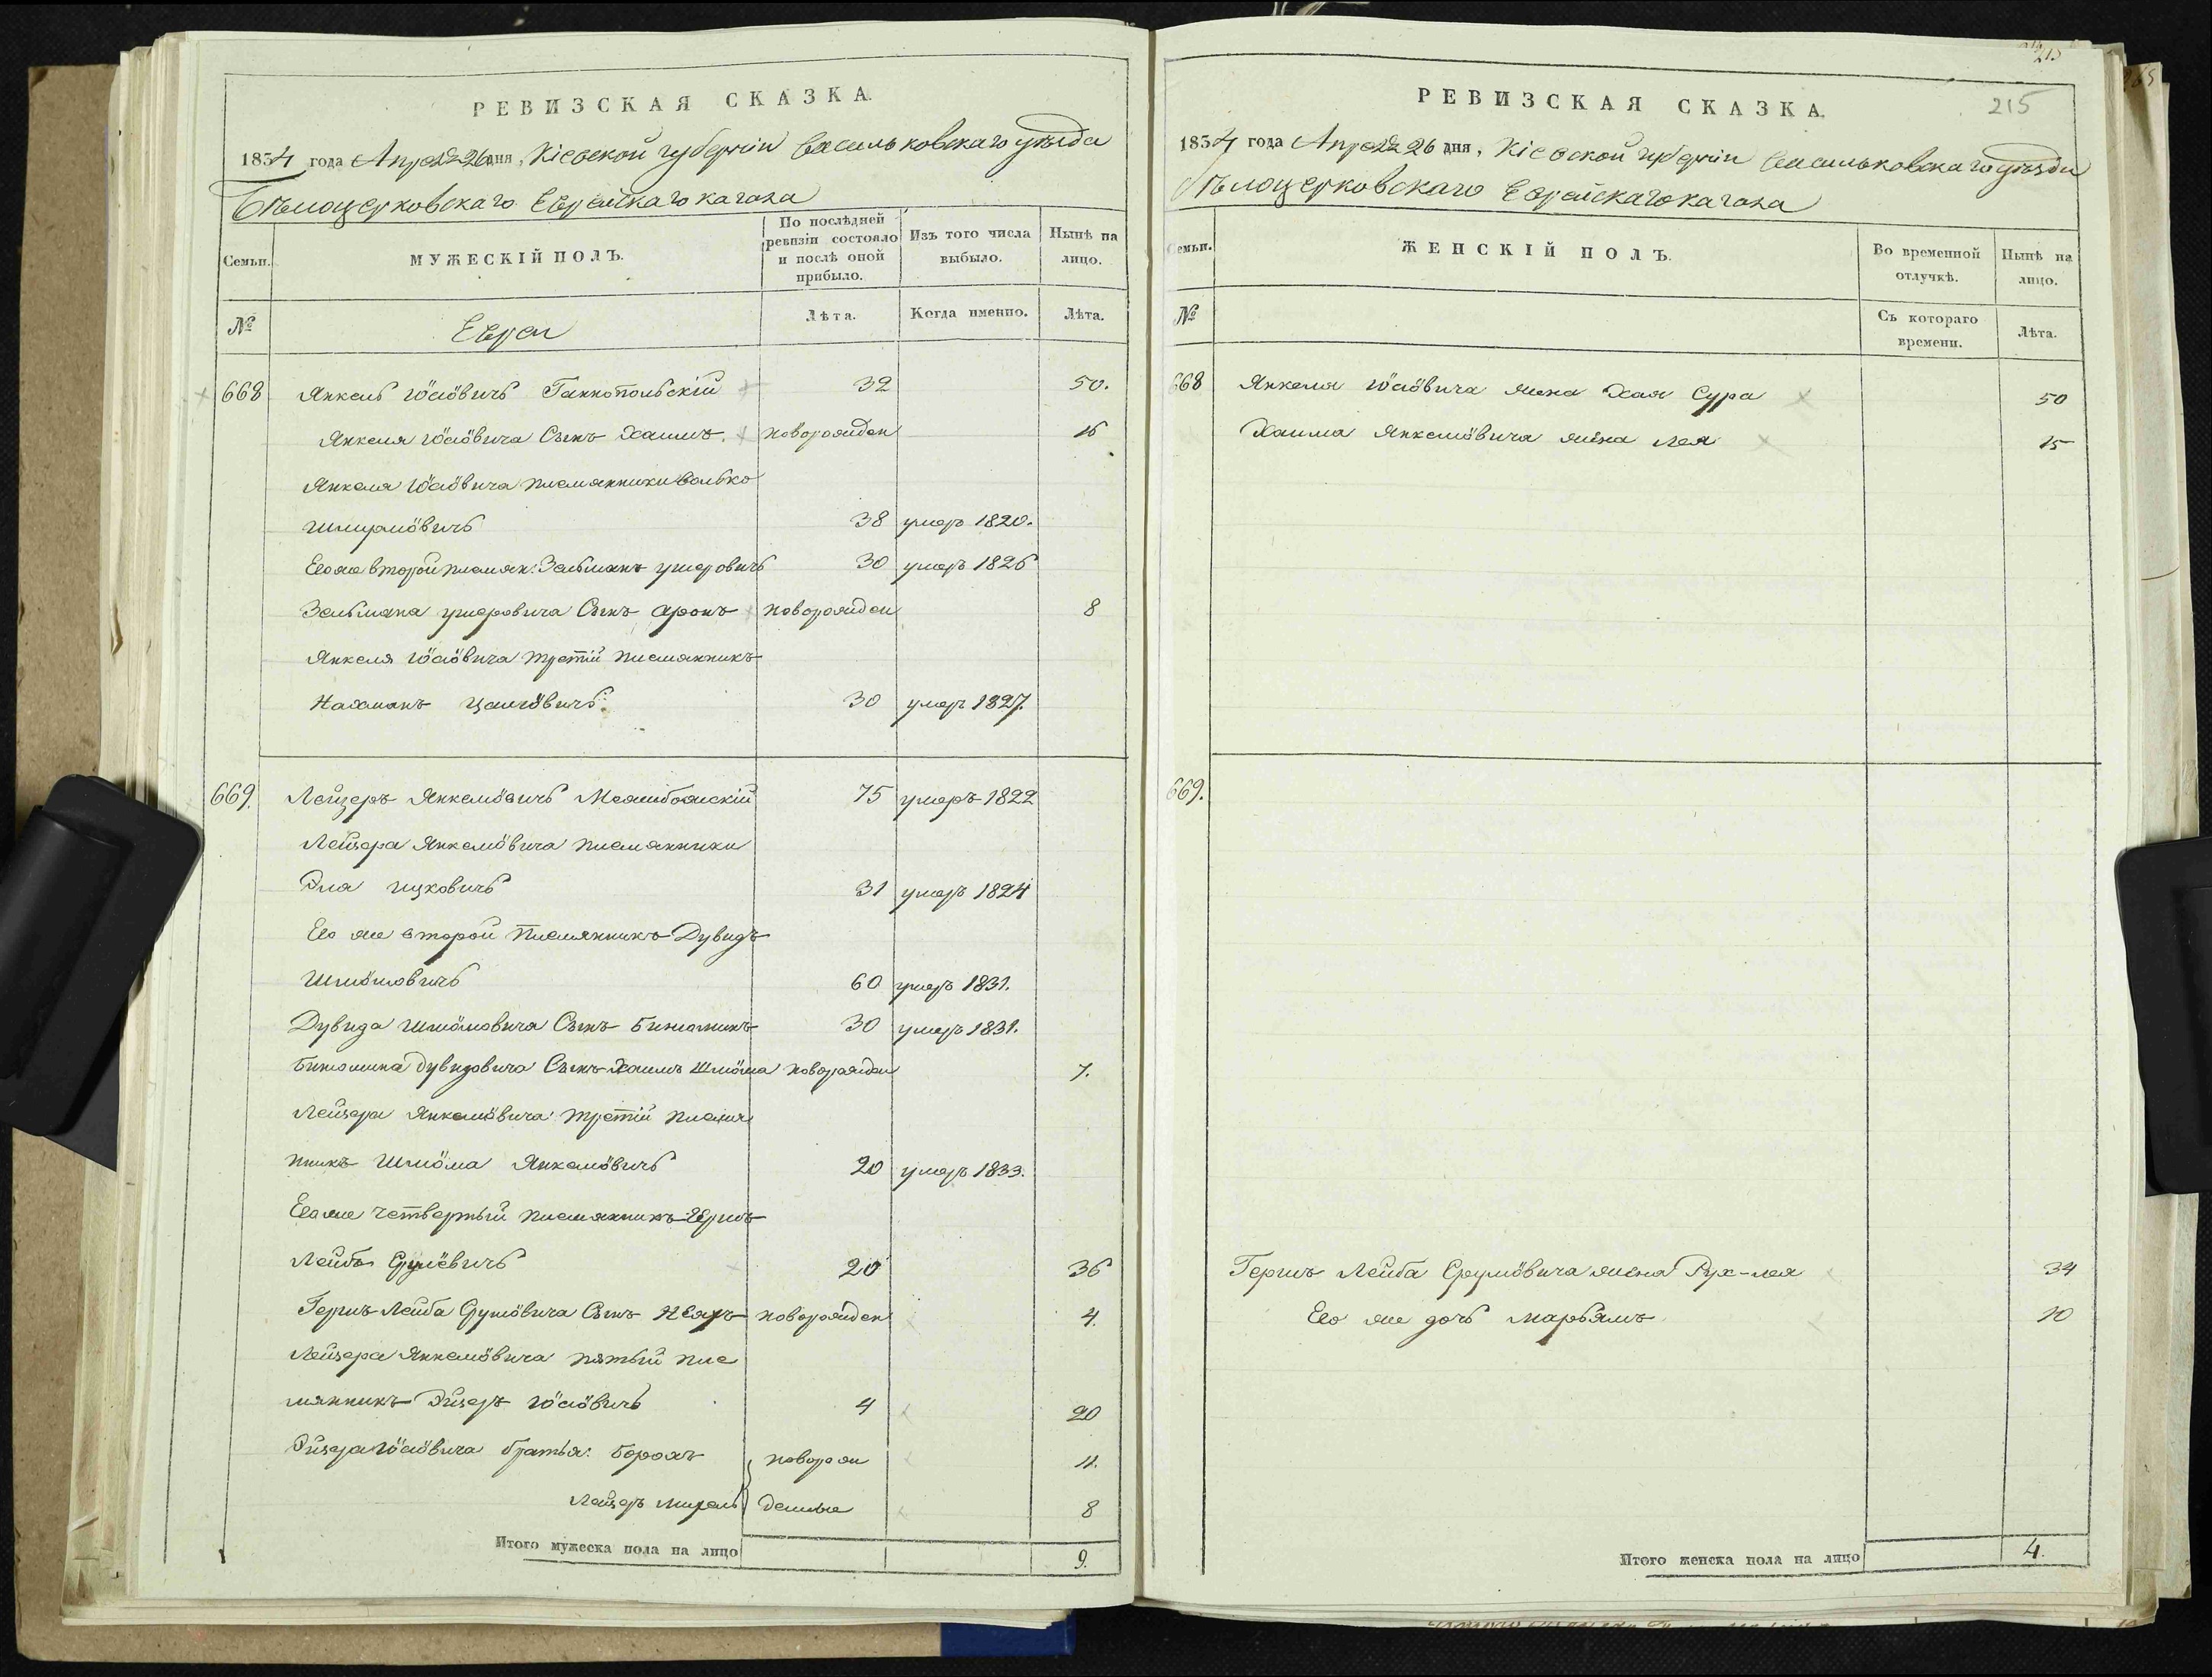 РЕВИЗСКАЯ СКАЗКА.
1834 года Апреля 26 дня, Кіевской губерніи Васильковскаго уѣзда
Бѣлоцерковскаго Еврейскаго кагала
Семьи.
МУЖЕСКІЙ ПОЛЪ.
По послѣдней ревизіи состояло и послѣ оной прибыло.
Изъ того числа выбыло.
Нынѣ на лицо.
№
Евреи
Лѣта.
Когда именно.
Лѣта.
668 Янкель Іосіовичъ Ганнопольскій 32 50.
Янкеля Іосіовича Сынъ Хаимъ. новорожден 16
Янкеля Іосіовича племянники Волько
Шмулиовичъ 38 умеръ 1820.
Его же второй племян: Зельманъ Ушеровичъ 30 умеръ 1826
Зельмана Ушеровича Сынъ Аронъ новорожден 8
Янкеля Іосіовича третій племянникъ
Нахманъ 30 умеръ 1827.
669. Лейзеръ Янкеліовичъ Межибожскій 75 умеръ 1822
Лейзера Янкеліовича племянники
Эля Ицковичъ 31 умеръ 1824
Его же второй племянникъ Дувидъ
Шліомовичъ 60 умеръ 1831.
Дувида Шліомовича Сынъ Биньоминъ 30 умеръ 1831.
Биньомина Дувидовича Сынъ Хаимъ Шліома новорожден 7.
Лейзера Янкеліовича третій племя
нникъ Шліома Янкеліовичъ 20 умеръ 1833.
Его же четвертый племянникъ Гершъ
Лейбъ Сруліовичъ 20 36
Гершъ Лейба Сруліовича Сынъ новорожден 4.
Лейзера Янкеліовича пятый пле
мянникъ Эйзеръ Іосіовичъ 4 20
Эйзера Іосіовича братья: Борохъ новорож 11.
Лейзеръ денные 8
Итого мужеска пола на лицо 9.
215
РЕВИЗСКАЯ СКАЗКА.
215
1834 года Апреля 26 дня, Кіевской губерніи Васильковскаго уѣзда
Бѣлоцерковскаго Еврейскаго кагала
Семьи.
ЖЕНСКІЙ ПОЛЪ.
Во временной отлучкѣ.
Нынѣ на лицо.
№
Съ котораго времени.
Лѣта.
668 Янкеля Іосіовича жена Хая Сура 50
Хаима Янкеліовича жена Лея 15
669.
Гершъ Лейба Сруліовича жена Рух-лея 34
Его же дочь Марьямъ 10
Итого женска пола на лицо 4.